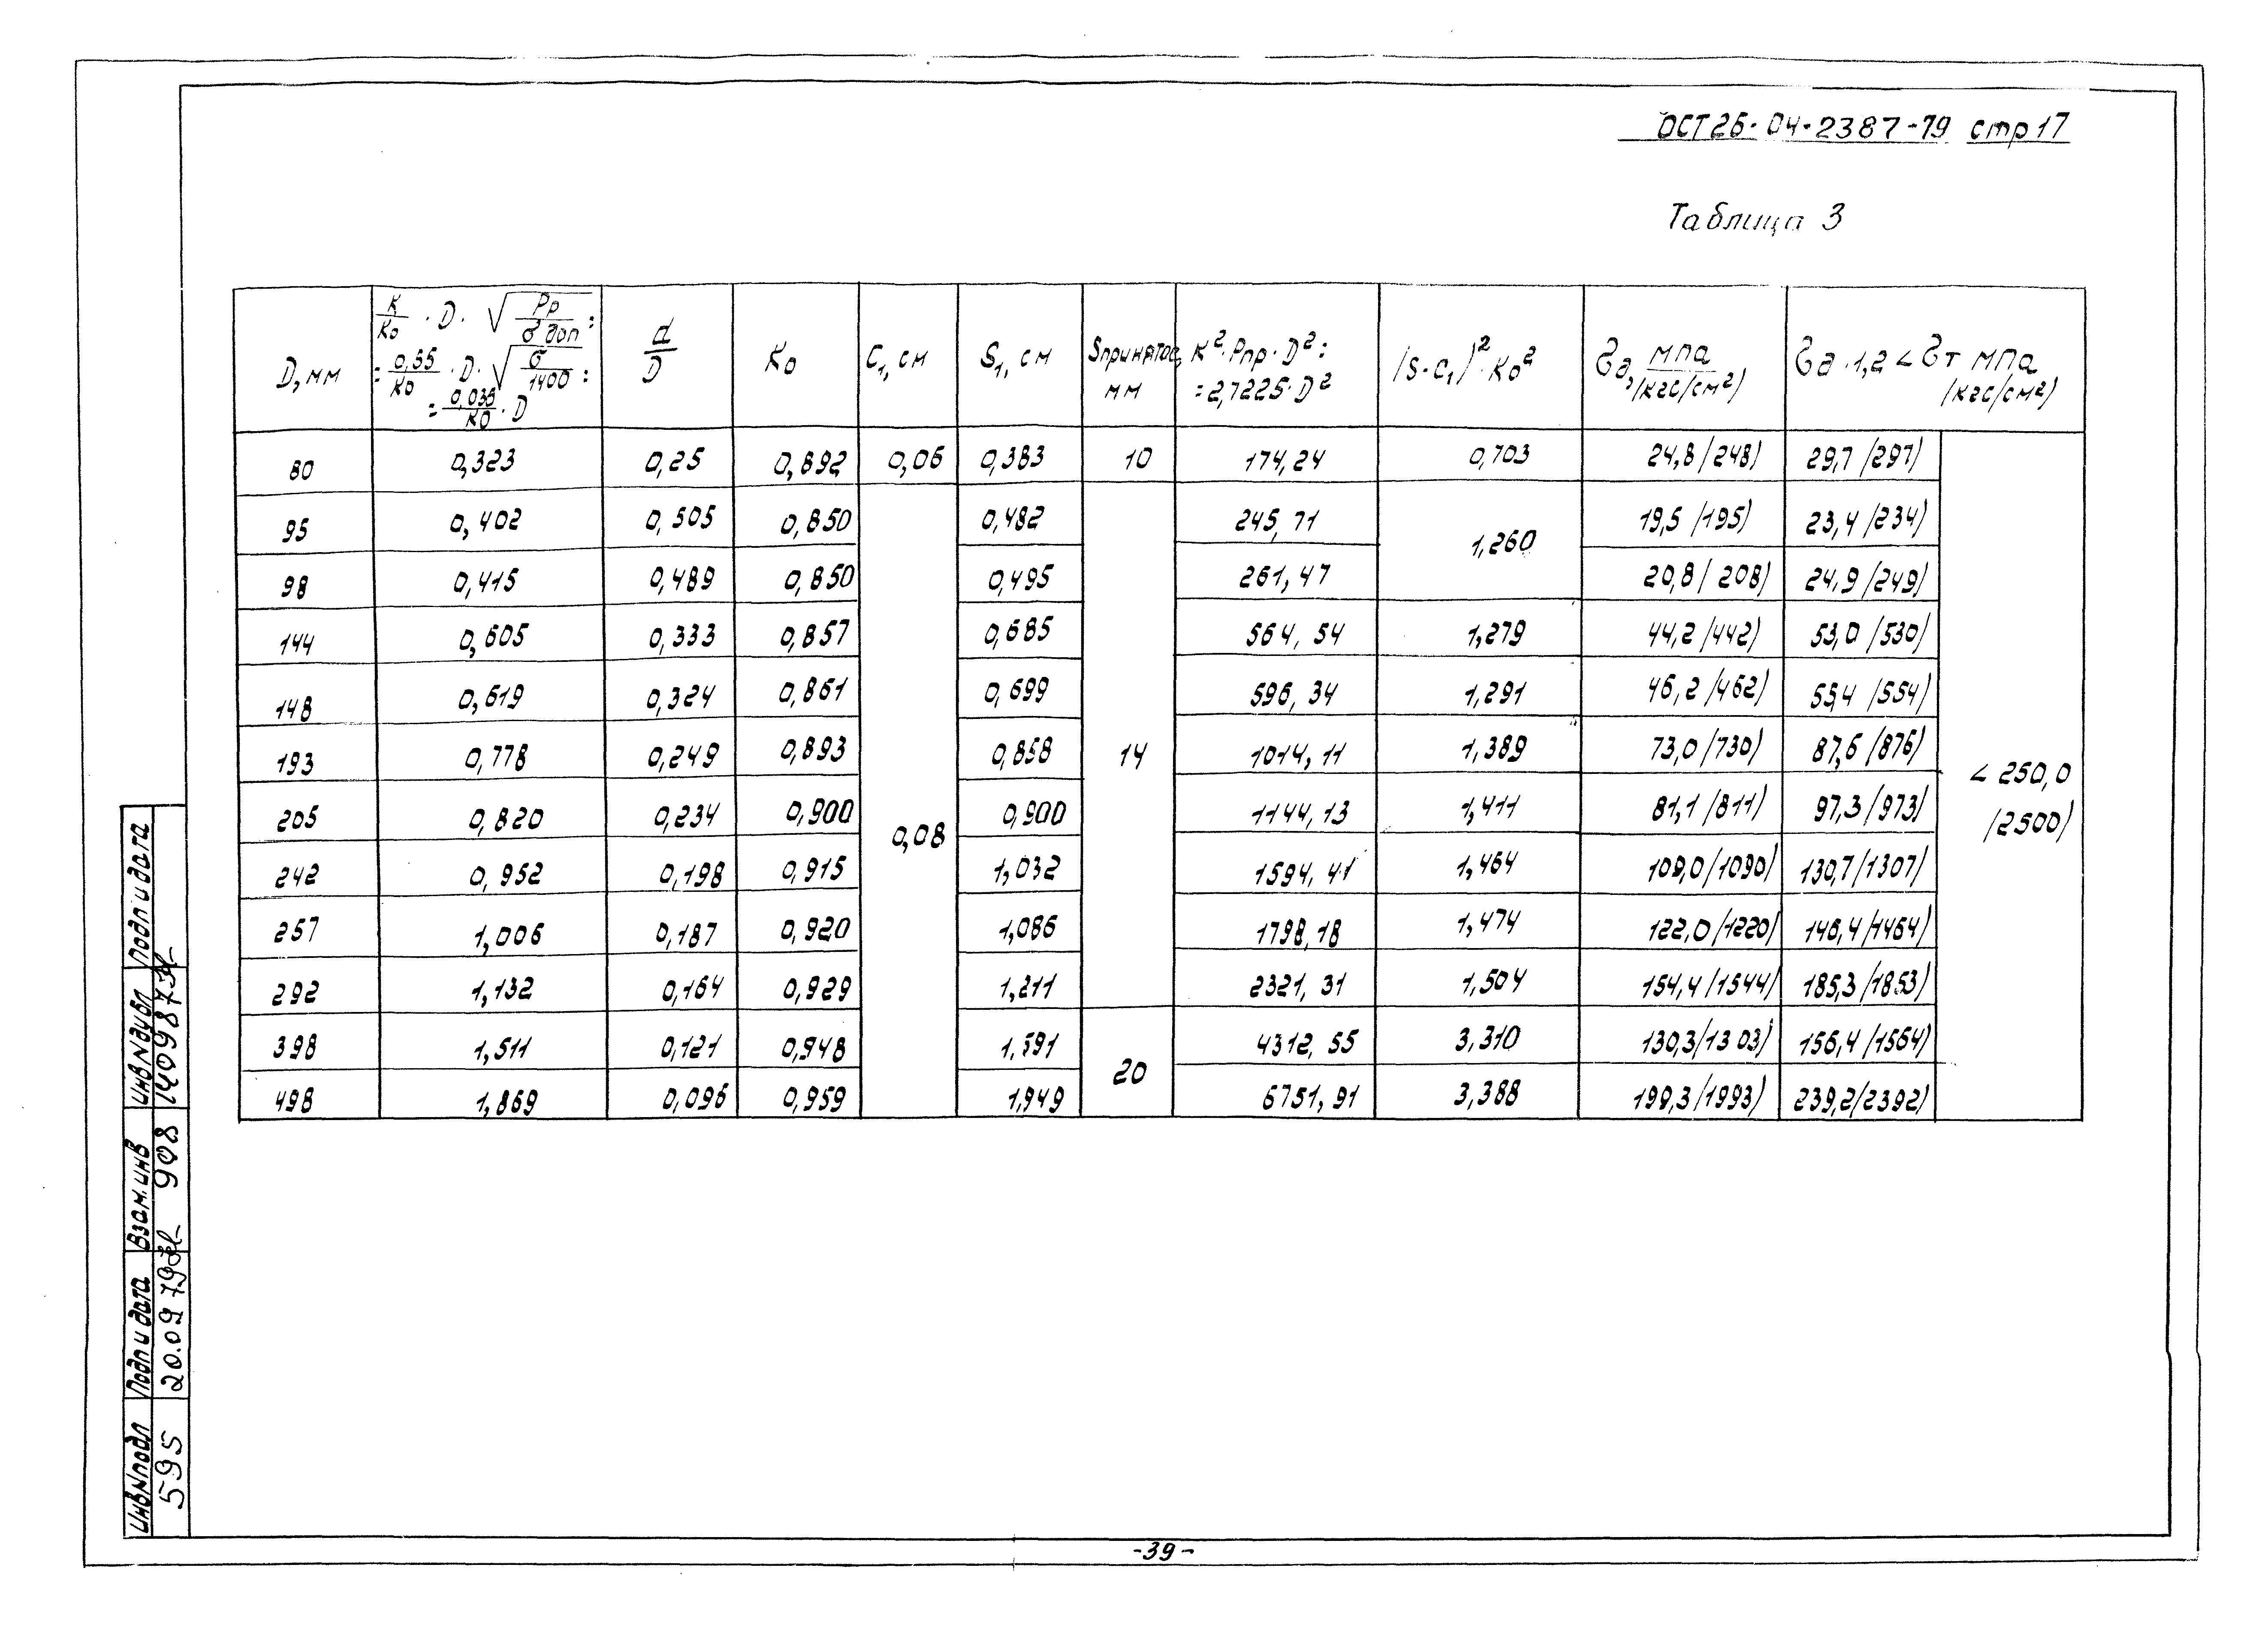 ОСТ26-04-2387-79 стр17
Таблица 3
D, мм | K/K0 · D · √(Pр/σдоп) = = 0,55/K0 · D · √(σ/1400) = = 0,035/K0 · D | d/D | K0 | C1, см | S1, см | Sпринятое, мм | K²·Pпр·D² = = 2,7225·D² | (S-C1)²·K0² | σд, мпа /кгс/см²) | σд·1,2 < σт мпа /кгс/см²)
80 | 0,323 | 0,25 | 0,892 | 0,06 | 0,383 | 10 | 174,24 | 0,703 | 24,8 /248) | 29,7 /297)
95 | 0,402 | 0,505 | 0,850 | 0,08 | 0,482 | 14 | 245,71 | 1,260 | 19,5 /195) | 23,4 /234) | < 250,0 /2500)
98 | 0,415 | 0,489 | 0,850 | 0,495 | 261,47 | 20,8 /208) | 24,9 /249)
144 | 0,605 | 0,333 | 0,857 | 0,685 | 564,54 | 1,279 | 44,2 /442) | 53,0 /530)
148 | 0,619 | 0,324 | 0,861 | 0,699 | 596,34 | 1,291 | 46,2 /462) | 55,4 /554)
193 | 0,778 | 0,249 | 0,893 | 0,858 | 1014,11 | 1,389 | 73,0 /730) | 87,6 /876)
205 | 0,820 | 0,234 | 0,900 | 0,900 | 1144,13 | 1,411 | 81,1 /811) | 97,3 /973)
242 | 0,952 | 0,198 | 0,915 | 1,032 | 1594,41 | 1,464 | 109,0 /1090) | 130,7 /1307)
257 | 1,006 | 0,187 | 0,920 | 1,086 | 1798,18 | 1,474 | 122,0 /1220) | 146,4 /1464)
292 | 1,132 | 0,164 | 0,929 | 1,211 | 2321,31 | 1,504 | 154,4 /1544) | 185,3 /1853)
398 | 1,511 | 0,121 | 0,948 | 1,591 | 20 | 4312,55 | 3,310 | 130,3 /1303) | 156,4 /1564)
498 | 1,869 | 0,096 | 0,959 | 1,949 | 6751,91 | 3,388 | 199,3 /1993) | 239,2 /2392)
Инв№подл | Подп и дата | Взам.инв | Инв№дубл | Подп и дата
595 | 20.09 79 | 908
-39-